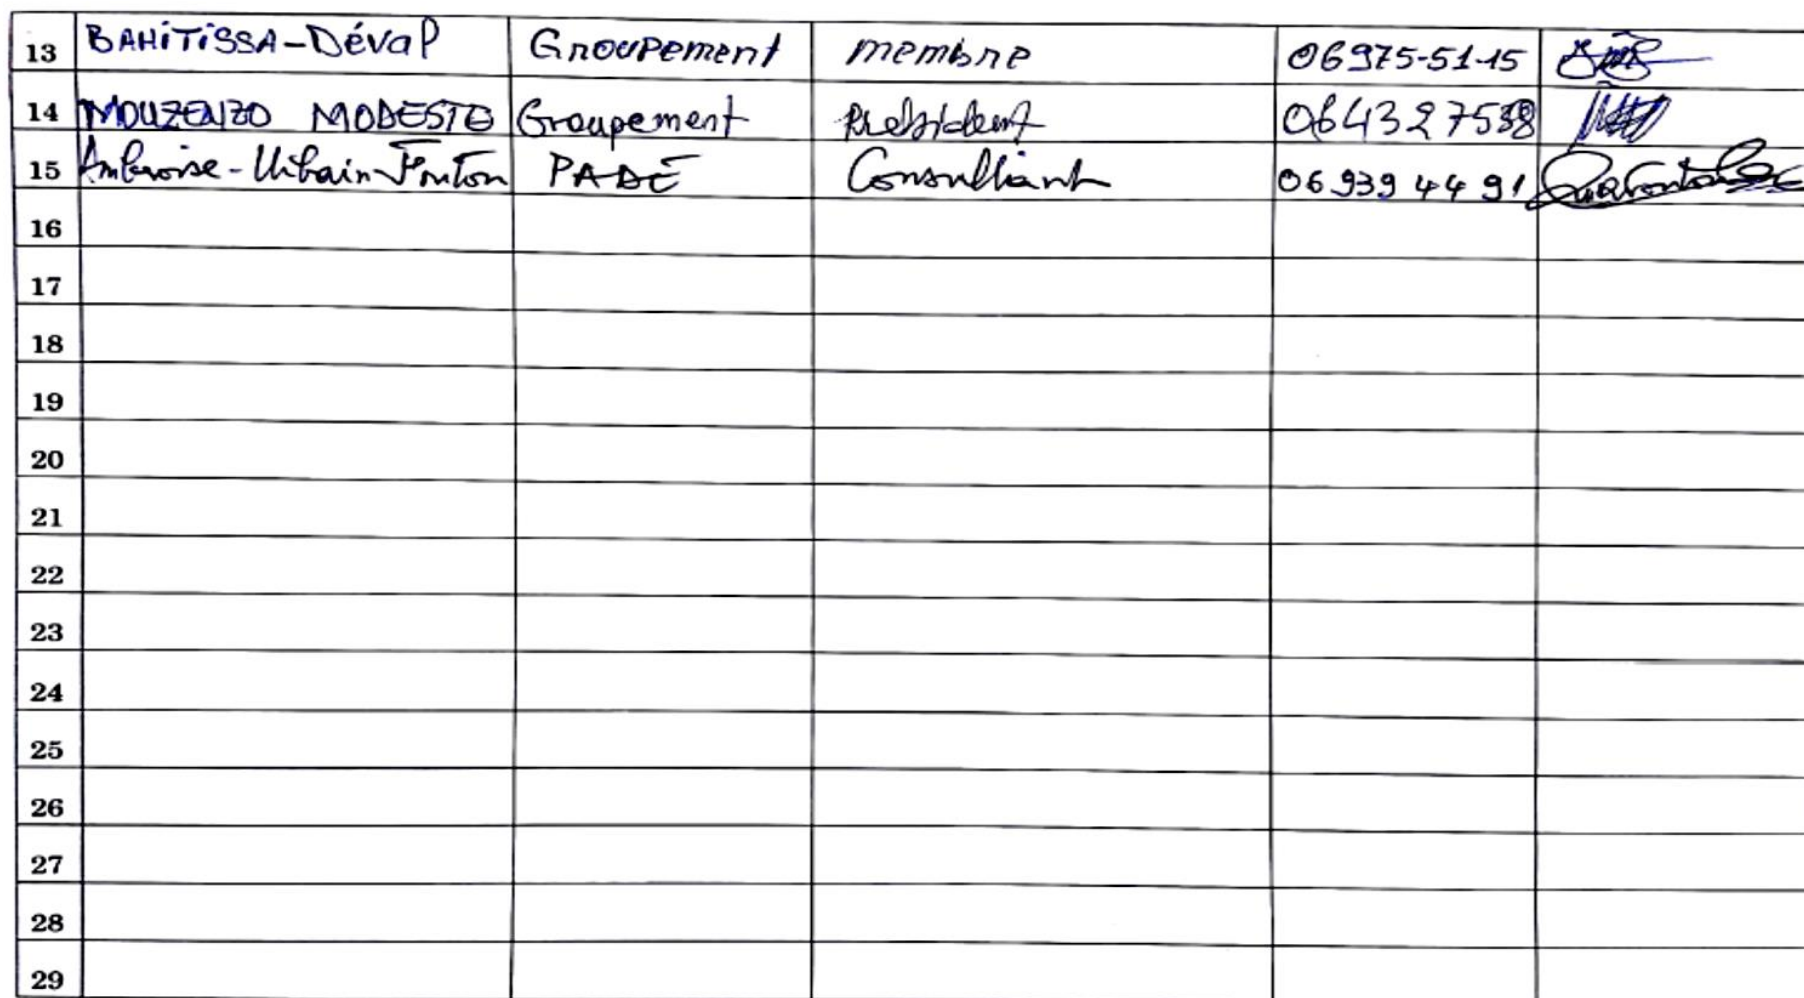 13 BAHITISSA-Déval Groupement membre 06975-51-15
14 MOUZENZO MODESTE Groupement président 064327538
15 Ambroise-Urbain Fonton PADE Consultant 06 939 44 91
16
17
18
19
20
21
22
23
24
25
26
27
28
29